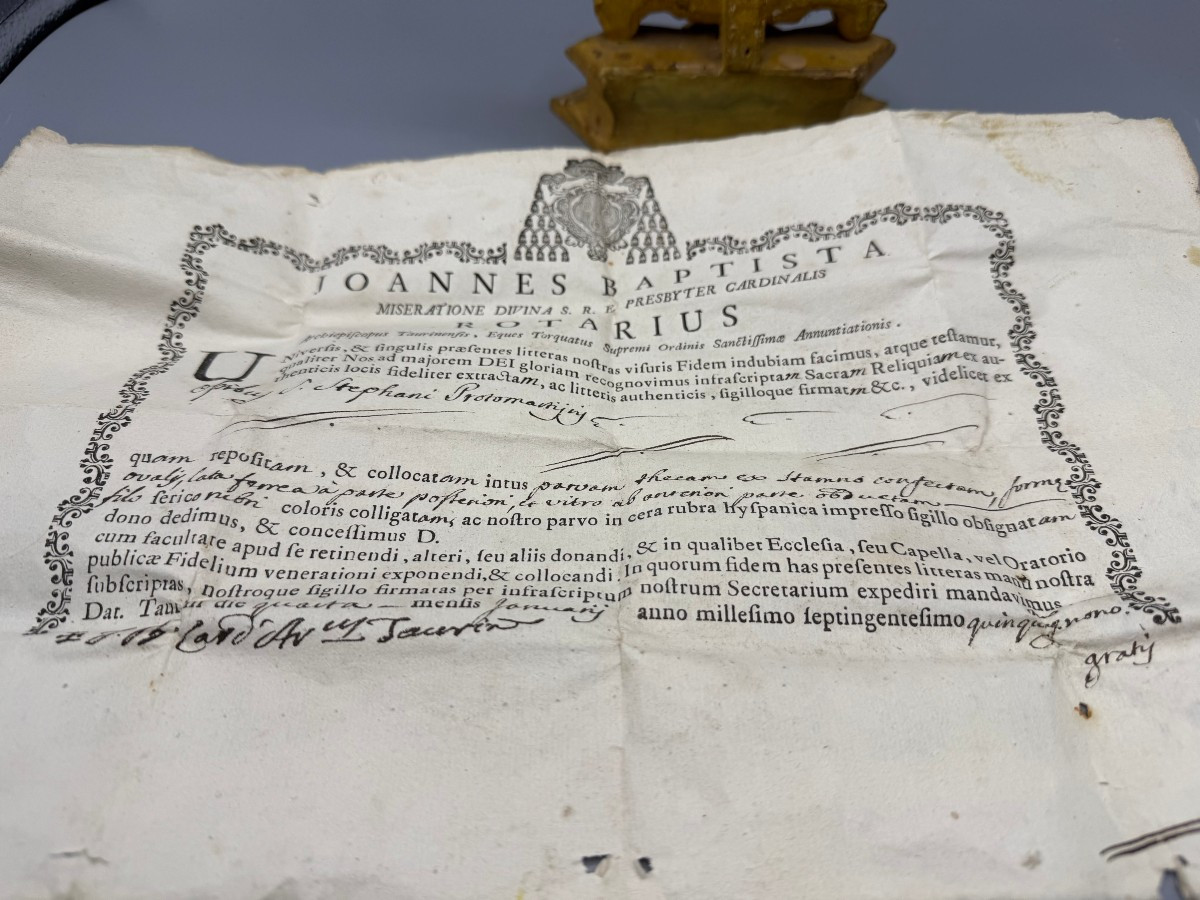 JOANNES BAPTISTA
MISERATIONE DIVINA S. R. E. PRESBYTER CARDINALIS
ROTARIUS
Archiepiscopus Taurinensis, Eques Torquatus Supremi Ordinis Sanctissimæ Annuntiationis.
UNiversis, & singulis præsentes litteras nostras visuris Fidem indubiam facimus, atque testamur,
qualiter Nos ad majorem DEI gloriam recognovimus infrascriptam Sacram Reliquiam ex au-
thenticis locis fideliter extractam, ac litteris authenticis, sigilloque firmatm &c., videlicet ex
S. Stephani Protomartijris
quam repositam, & collocatam intus parvam thecam ex stamno confectam, formæ
ovalis, lata ferrea à parte posteriori, et vitro ab anteriori parte obductam
filo serico rubri coloris colligatam, ac nostro parvo in cera rubra hyspanica impresso sigillo obsignatam
dono dedimus, & concessimus D.
cum facultate apud se retinendi, alteri, seu aliis donandi, & in qualibet Ecclesia, seu Capella, vel Oratorio
publicæ Fidelium venerationi exponendi, & collocandi. In quorum fidem has presentes litteras manu nostra
subscriptas, nostroque sigillo firmatas per infrascriptum nostrum Secretarium expediri mandavimus
Dat. Taurini die quarta mensis Januarij anno millesimo septingentesimo quinquag. nono.
Card. Ar. Taurin
gratis